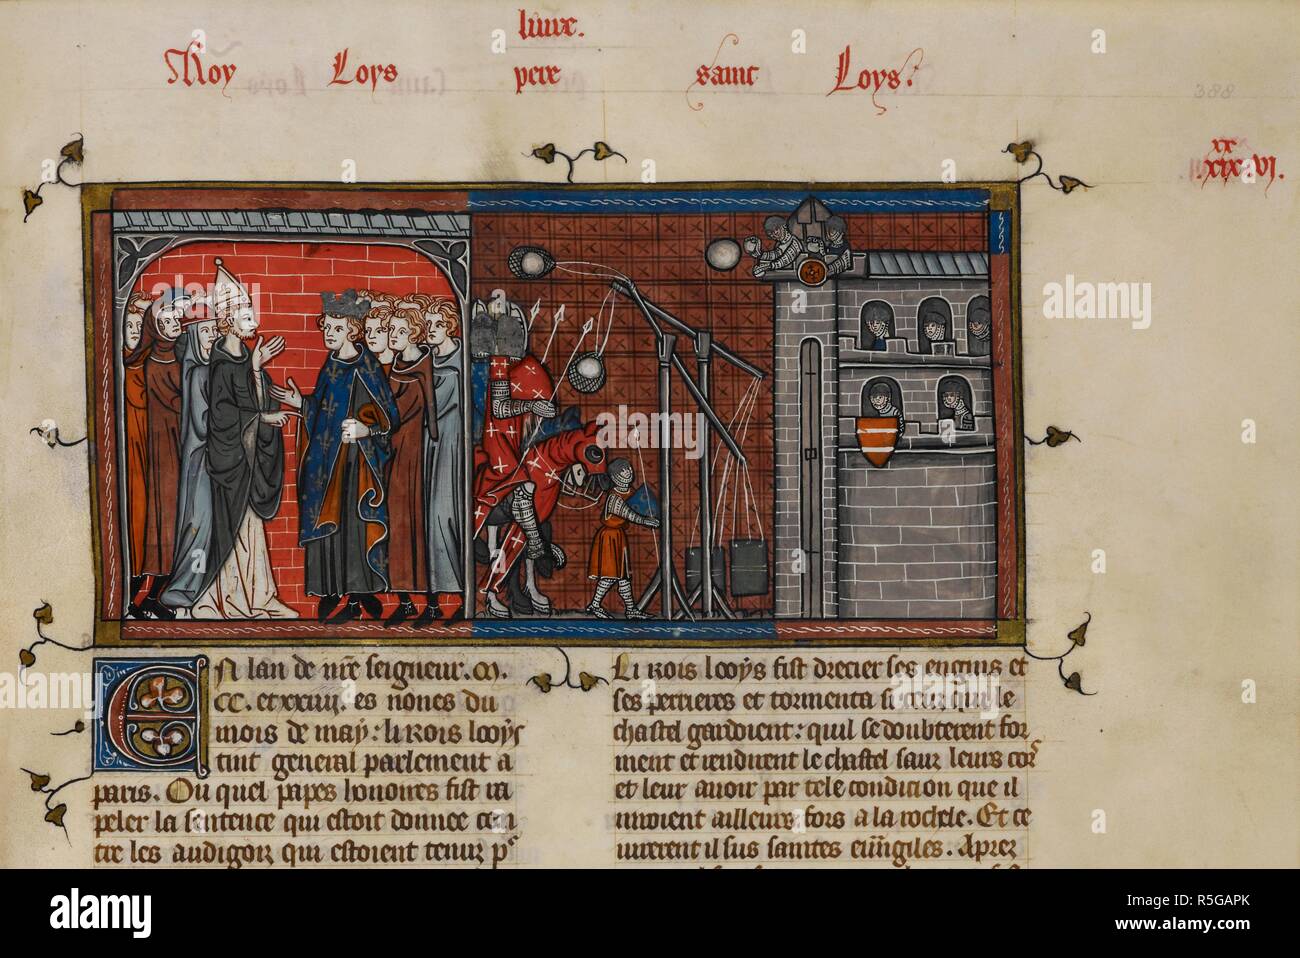 liure.
Roy Loys pere saint Loys.
388
xx
xix.vi.
EN lan de nr̃e seigneur. m.
CC. et xxiiij. es nones du
mois de may: li rois looys
tint general parlement a
paris. Ou quel papes honoires fist ra
peler la sentence qui estoit donnee con
tre les aubigois qui estoient tenuz
Li rois looys fist drecier ses engins et
ses perrieres et tormenta si ceux qui le
chastel gardoient: quil se doubterent for
ment et rendirent le chastel sauz leurs cors
et leur auoir par tele condition que il
iuroient ailleurs fors a la rochele. Et ce
iurerent il sus saintes euũgiles. Apres
alamy stock photo
alamy
R5GAPK
www.alamy.com